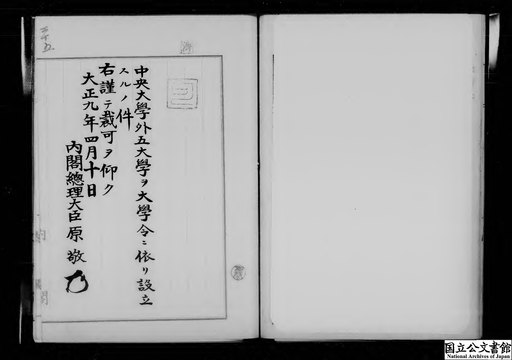 中央大學外五大學ヲ大學令ニ依リ設立
スルノ件
右謹テ裁可ヲ仰ク
大正九年四月十日
內閣總理大臣 原敬
国立公文書館
National Archives of Japan